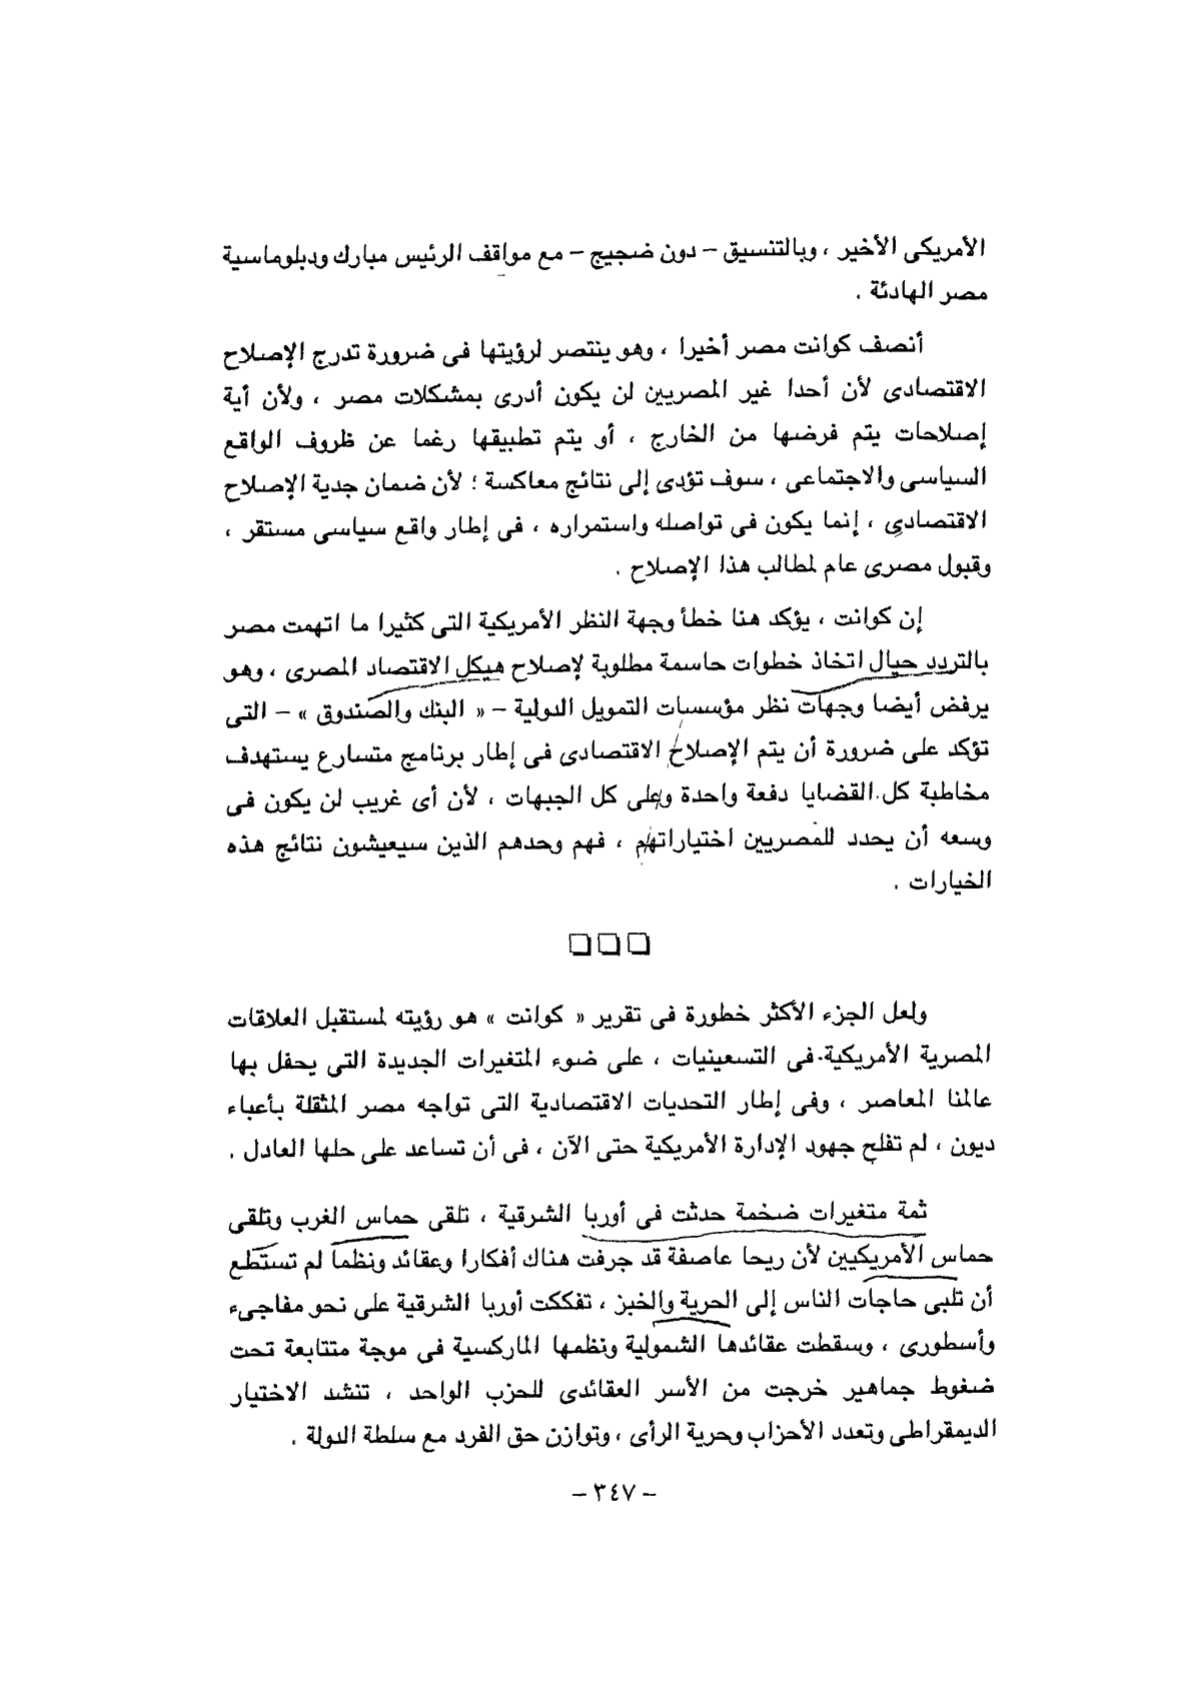 الأمريكى الأخير ، وبالتنسيق – دون ضجيج – مع مواقف الرئيس مبارك ودبلوماسية
مصر الهادئة .
أنصف كوانت مصر أخيرا ، وهو ينتصر لرؤيتها فى ضرورة تدرج الإصلاح
الاقتصادى لأن أحدا غير المصريين لن يكون أدرى بمشكلات مصر ، ولأن أية
إصلاحات يتم فرضها من الخارج ، أو يتم تطبيقها رغما عن ظروف الواقع
السياسى والاجتماعى ، سوف تؤدى إلى نتائج معاكسة ؛ لأن ضمان جدية الإصلاح
الاقتصادى ، إنما يكون فى تواصله واستمراره ، فى إطار واقع سياسى مستقر ،
وقبول مصرى عام لمطالب هذا الإصلاح .
إن كوانت ، يؤكد هنا خطأ وجهة النظر الأمريكية التى كثيرا ما اتهمت مصر
بالتردد حيال اتخاذ خطوات حاسمة مطلوبة لإصلاح هيكل الاقتصاد المصرى ، وهو
يرفض أيضا وجهات نظر مؤسسات التمويل الدولية – « البنك والصندوق » – التى
تؤكد على ضرورة أن يتم الإصلاح الاقتصادى فى إطار برنامج متسارع يستهدف
مخاطبة كل القضايا دفعة واحدة وعلى كل الجبهات ، لأن أى غريب لن يكون فى
وسعه أن يحدد للمصريين اختياراتهم ، فهم وحدهم الذين سيعيشون نتائج هذه
الخيارات .
❑❑❑
ولعل الجزء الأكثر خطورة فى تقرير « كوانت » هو رؤيته لمستقبل العلاقات
المصرية الأمريكية فى التسعينيات ، على ضوء المتغيرات الجديدة التى يحفل بها
عالمنا المعاصر ، وفى إطار التحديات الاقتصادية التى تواجه مصر المثقلة بأعباء
ديون ، لم تفلح جهود الإدارة الأمريكية حتى الآن ، فى أن تساعد على حلها العادل .
ثمة متغيرات ضخمة حدثت فى أوربا الشرقية ، تلقى حماس الغرب وتلقى
حماس الأمريكيين لأن ريحا عاصفة قد جرفت هناك أفكارا وعقائد ونظما لم تستطع
أن تلبى حاجات الناس إلى الحرية والخبز ، تفككت أوربا الشرقية على نحو مفاجىء
وأسطورى ، وسقطت عقائدها الشمولية ونظمها الماركسية فى موجة متتابعة تحت
ضغوط جماهير خرجت من الأسر العقائدى للحزب الواحد ، تنشد الاختيار
الديمقراطى وتعدد الأحزاب وحرية الرأى ، وتوازن حق الفرد مع سلطة الدولة .
– ٣٤٧ –